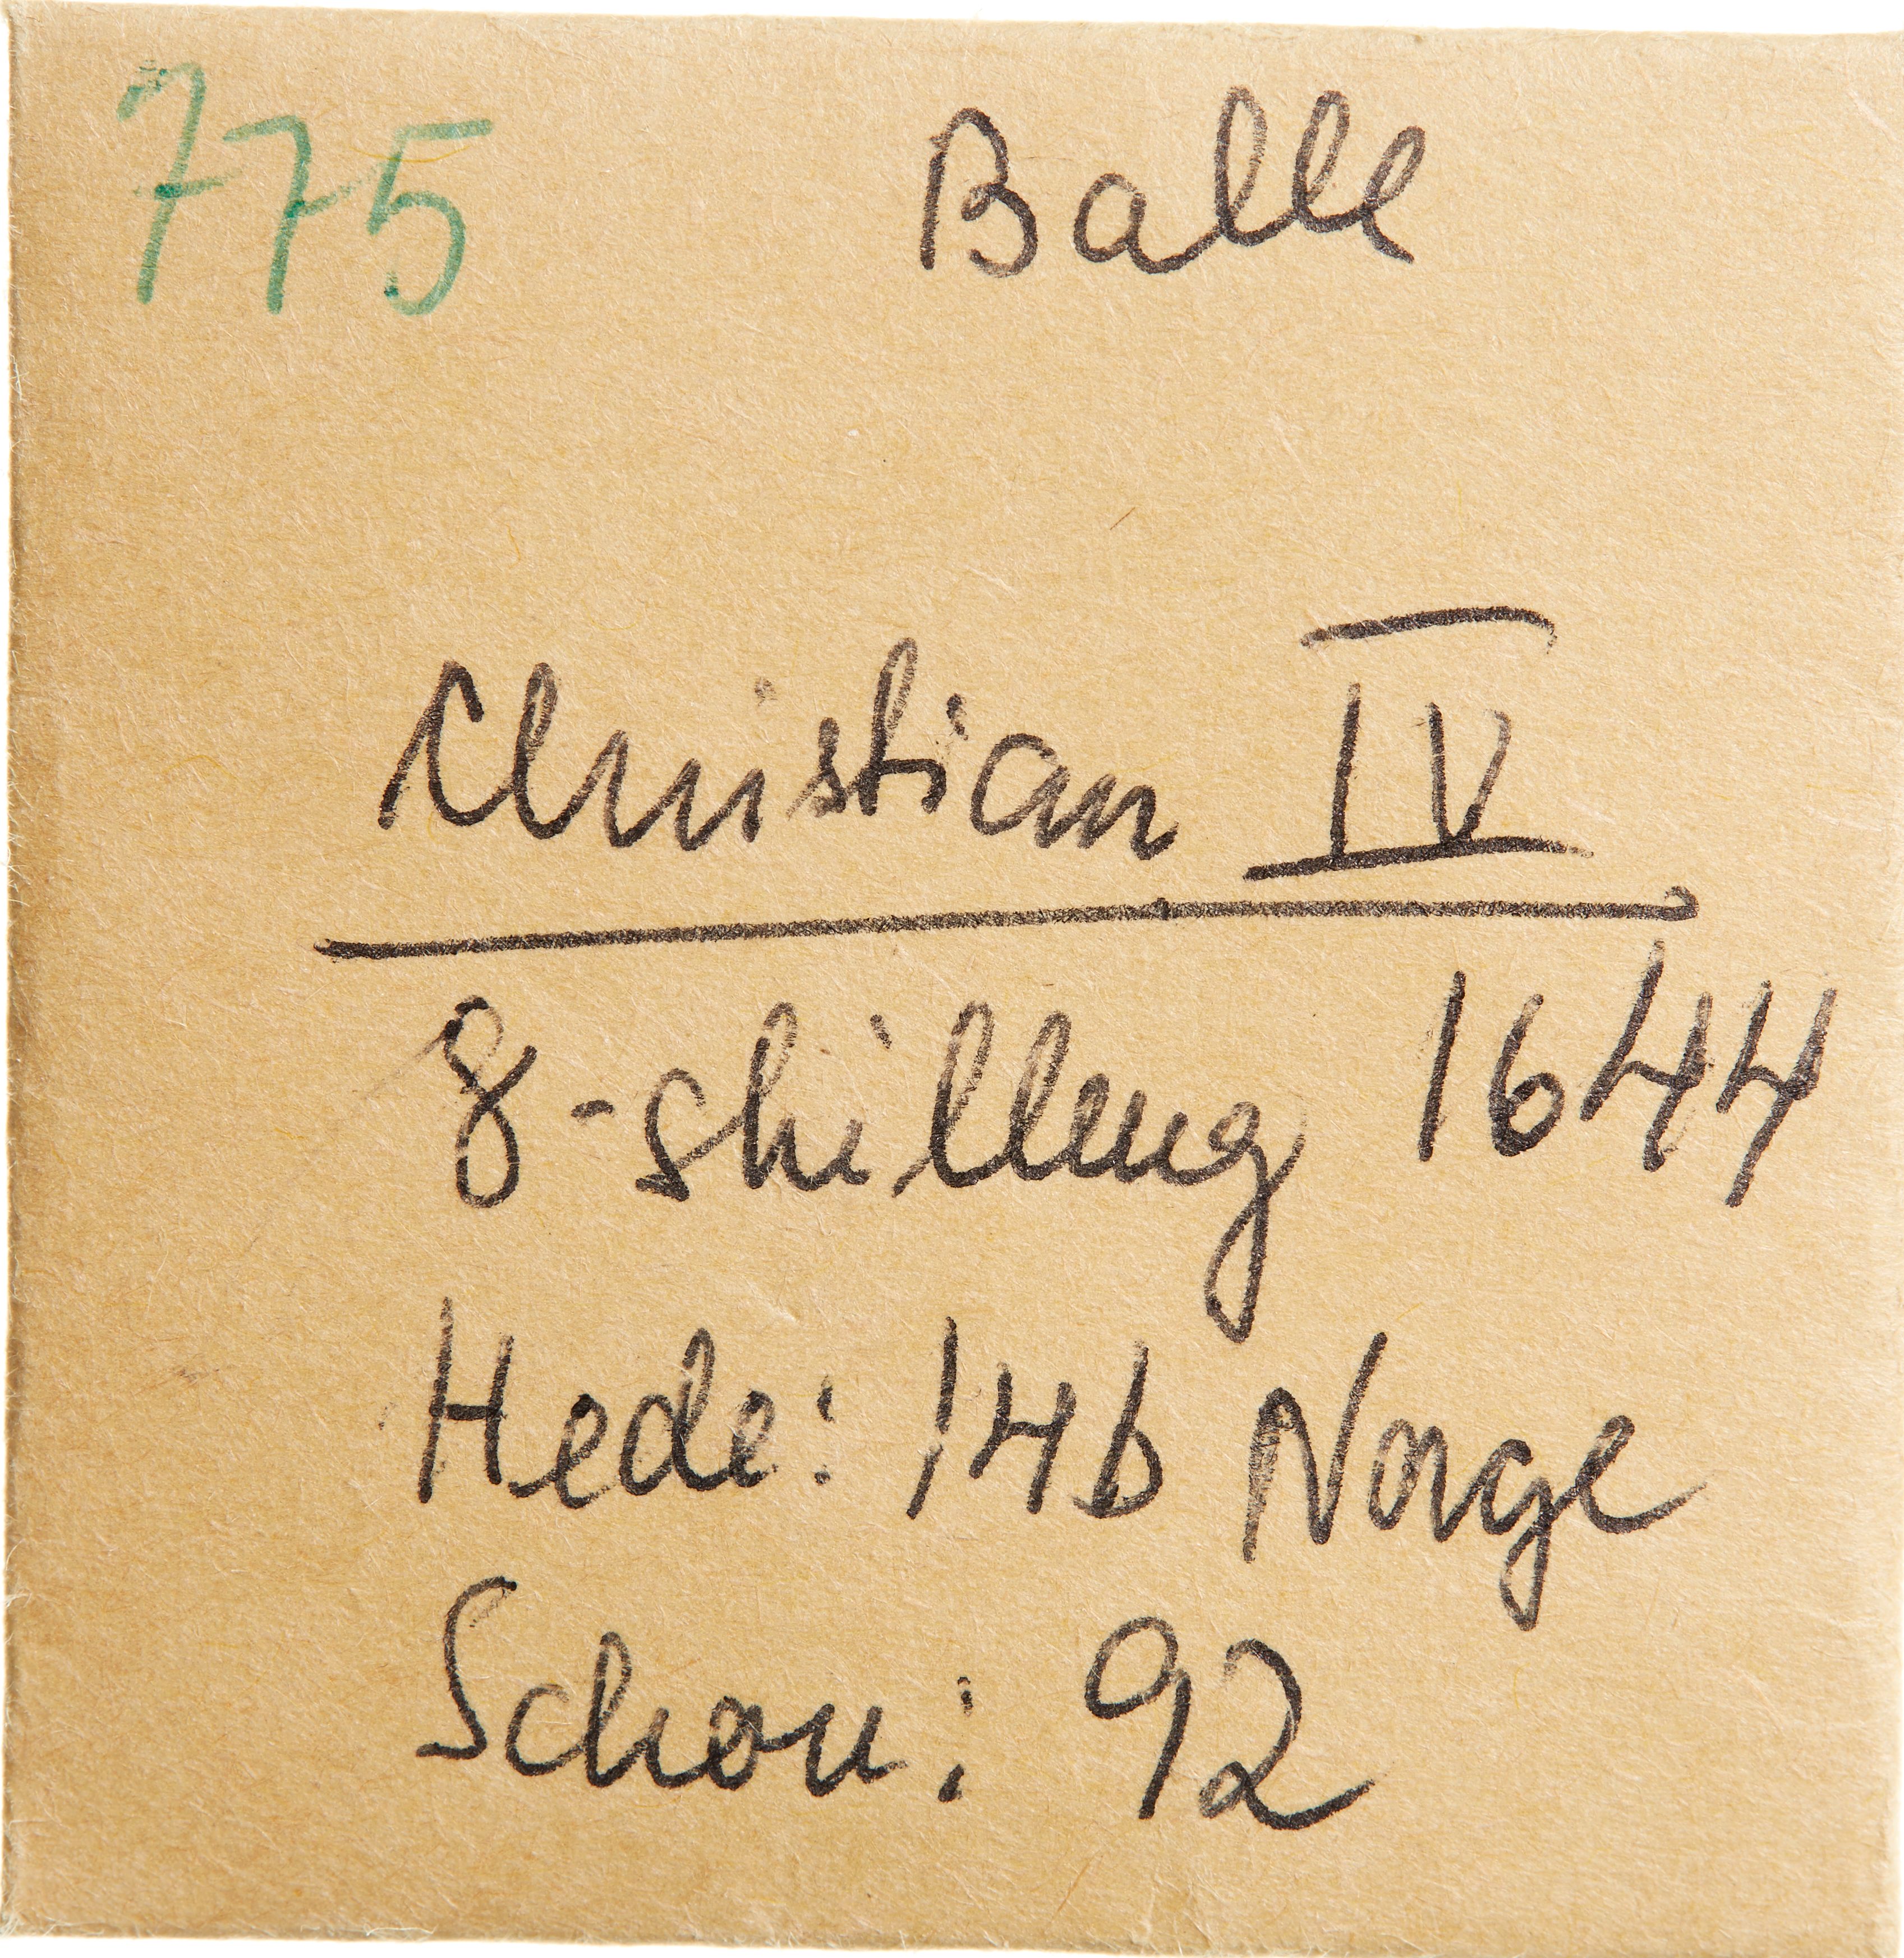 775 Balle
Christian IV
8-skilling 1644
Hede: 14b Norge
Schou: 92